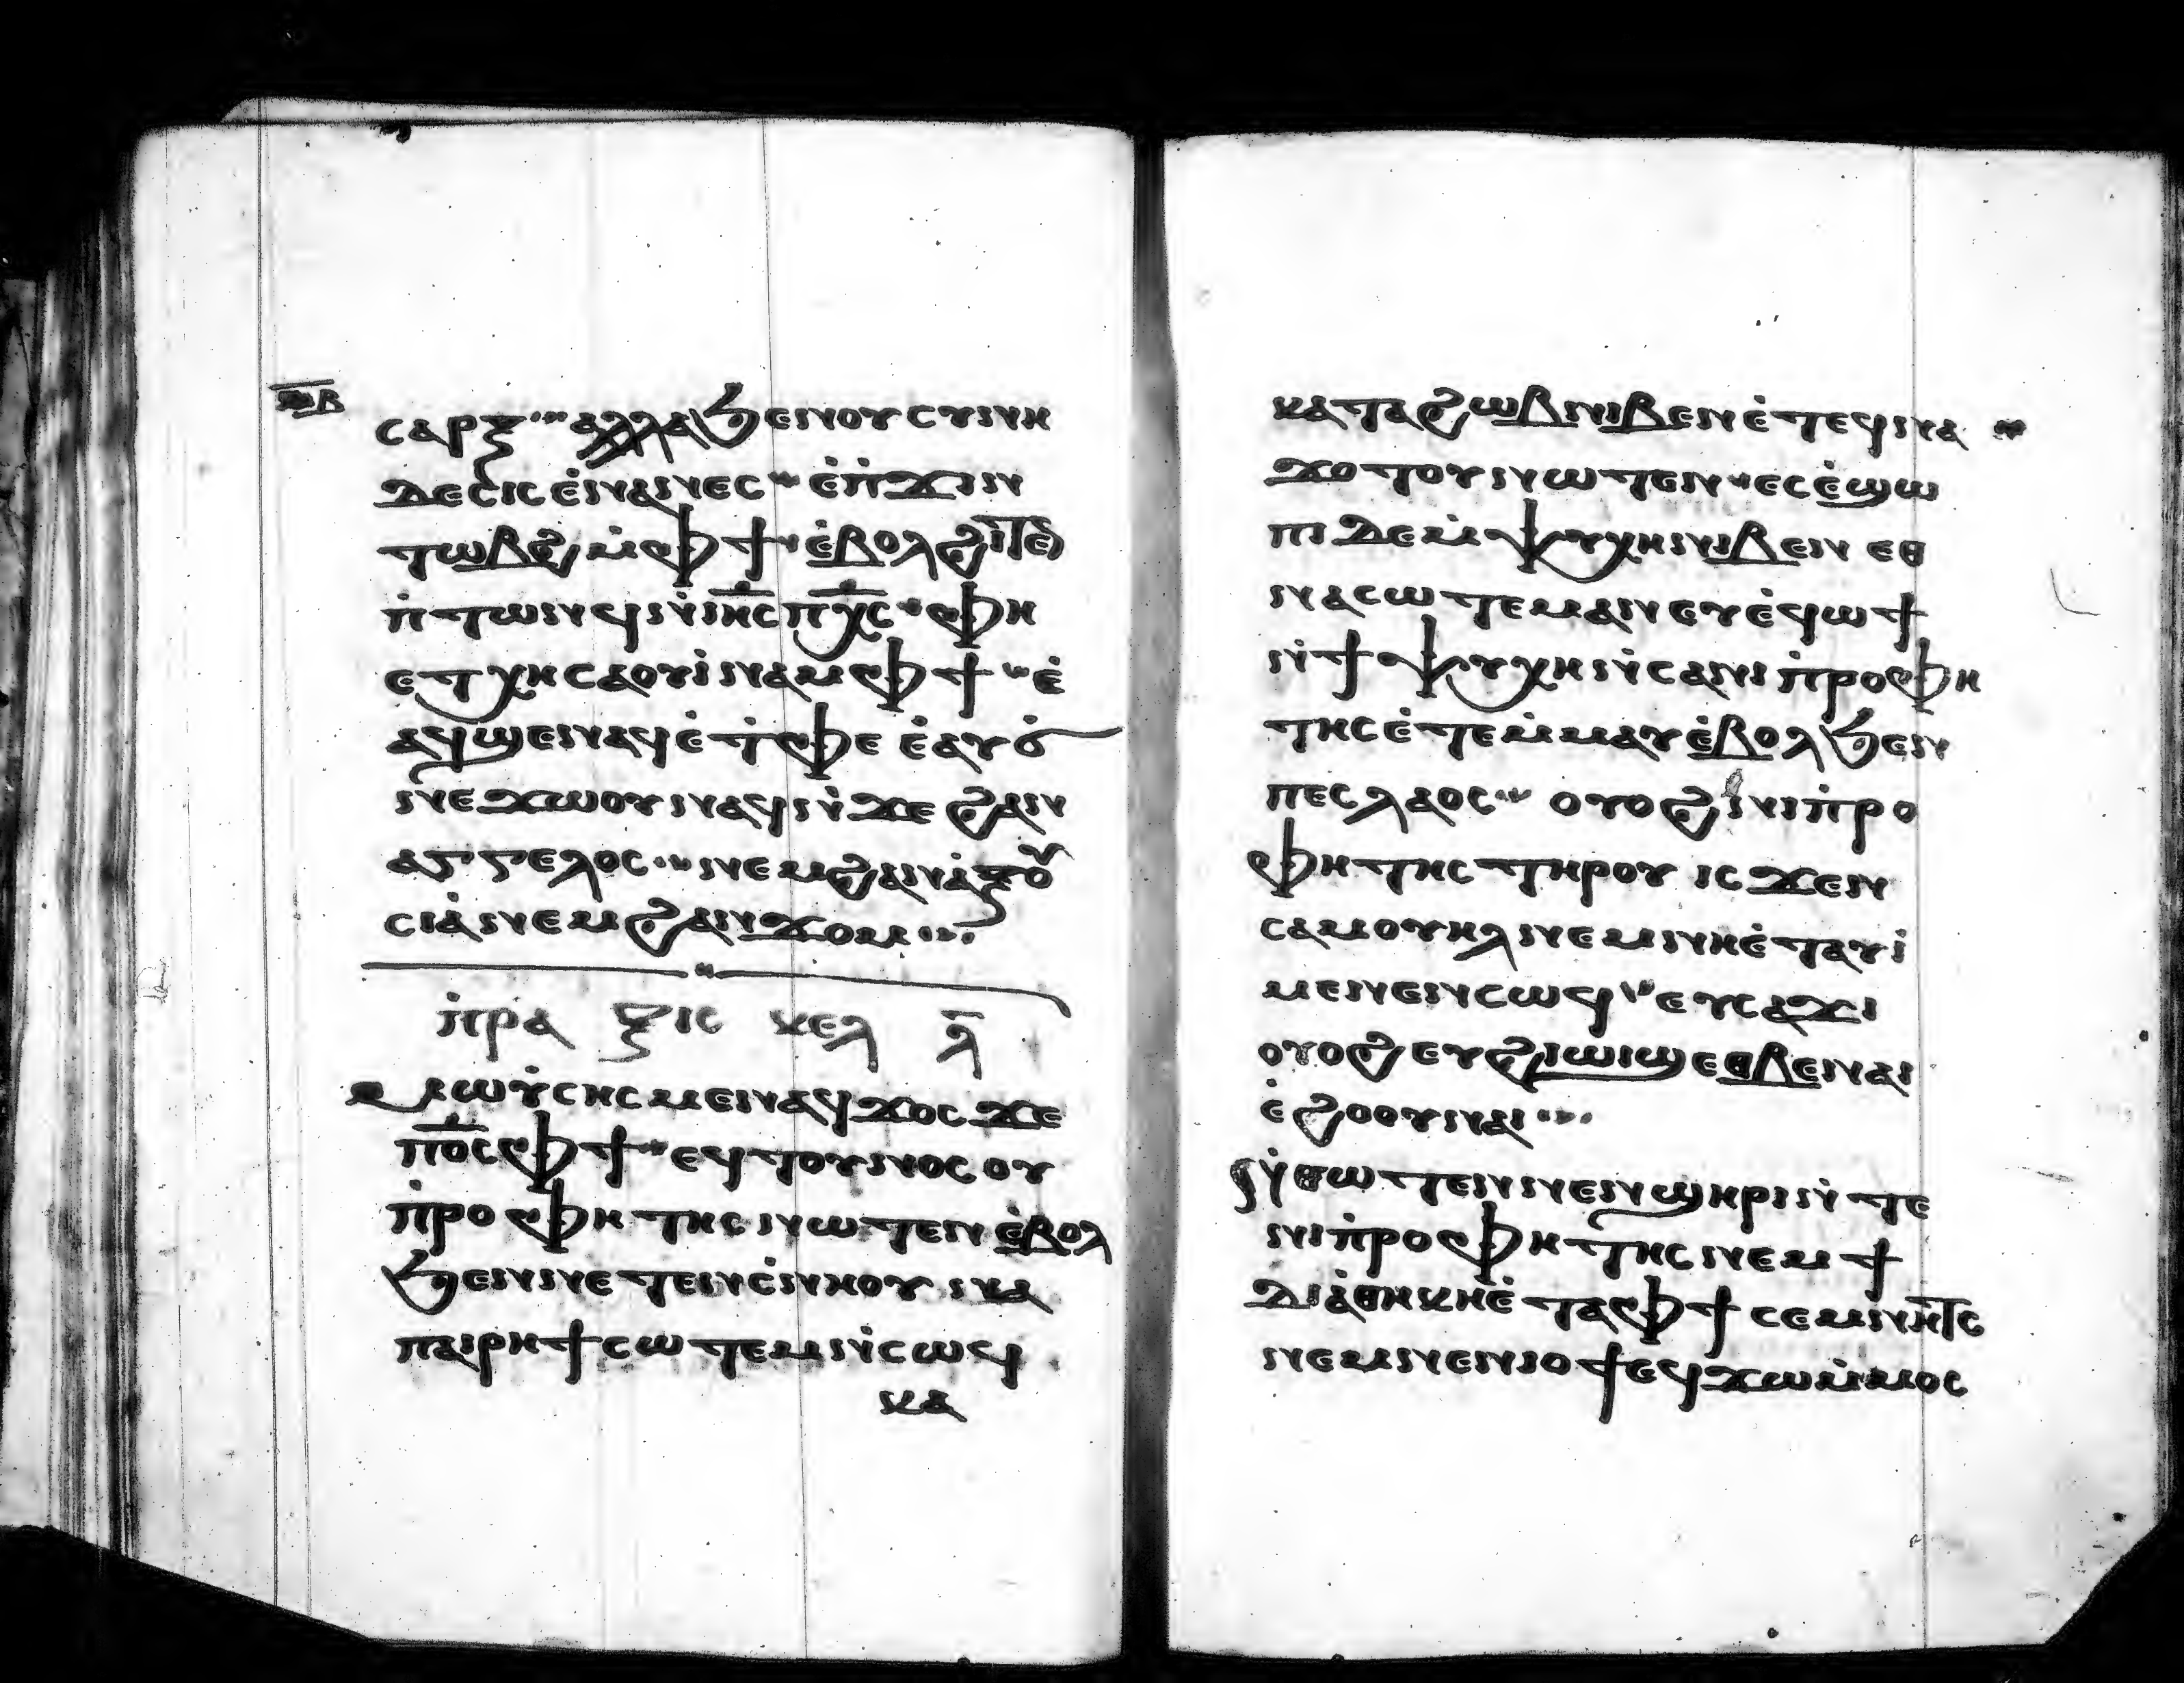 ⲥⲁⲣⲝ ⲁⲗⲗⲁ ϧⲉⲛ ⲟⲩⲥⲩⲛⲏ
ⲇⲉⲥⲓⲥ ⲉ̇ⲛⲁⲛⲉⲥ ⲉ̇ⲡ̇ϫⲓⲛ
ⲧⲱⲃϩ ⲙ̇ⲫϯ ⲉ̇ⲃⲟⲗ ϩⲓⲧⲉⲛ
ⲡ̇ⲧⲱⲛϥ ⲛ̇ⲓⲏ̅ⲥ̅ ⲡⲭ̅ⲥ̅ ⲫⲏ
ⲉⲧⲭⲏ ⲥⲁⲟⲩⲓ̇ⲛⲁⲙ ⲫϯ ⲉ̇
ⲁϥϣⲉⲛⲁϥ ⲉ̇ⲧ̇ⲫⲉ ⲉ̇ⲁⲩϭ̇
ⲛⲉϫⲱⲟⲩ ⲛⲁϥ ⲛ̇ϫⲉ ϩⲁⲛ
ⲁⲅⲅⲉⲗⲟⲥ ⲛⲉⲙ ϩⲁⲛⲁ̇ⲝⲟⲩ
ⲥⲓⲁ̇ ⲛⲉⲙ ϩⲁⲛϫⲟⲙ
ⲡ̇ⲣⲁⲝⲓⲥ ⲕⲉⲗ ⲗ̅
ⲙⲱⲩ̇ⲥⲏⲥ ⲙⲉⲛ ⲁϥϫⲟⲥ ϫⲉ
ⲡⲟ̅ⲥ̅ ⲫϯ ⲉϥⲧⲟⲩⲛⲟⲥ ⲟⲩ
ⲡ̇ⲣⲟⲫⲏⲧⲏⲥ ⲛⲱⲧⲉⲛ ⲉ̇ⲃⲟⲗ
ϧⲉⲛ ⲛⲉⲧⲉⲛⲥ̇ⲛⲏⲟⲩ ⲛⲁ
ⲡⲁⲓⲣⲏϯ ⲥⲱⲧⲉⲙ ⲛ̇ⲥⲱϥ
ⲕⲁ
ⲕⲁⲧⲁ ϩⲱⲃ ⲛⲓⲃⲉⲛ ⲉ̇ⲧⲉϥⲛⲁ
ϫⲟⲧⲟⲩ ⲛⲱⲧⲉⲛ ⲉⲥⲉ̇ϣⲱ
ⲡⲓ ⲇⲉ ⲙ̇ⲯⲩⲭⲏ ⲛⲓⲃⲉⲛ ⲉⲑ
ⲛⲁⲥⲱⲧⲉⲙ ⲁⲛ ⲉⲩⲉ̇ϥⲱϯ
ⲛ̇ϯⲯⲩⲭⲏ ⲛ̇ⲥⲁ ⲛⲓⲡ̇ⲣⲟⲫⲏ
ⲧⲏⲥ ⲉ̇ⲧⲉⲙ̇ⲙⲁⲩ ⲉ̇ⲃⲟⲗ ϧⲉⲛ
ⲡⲉⲥⲗⲁⲟⲥ ⲟⲩⲟϩ ⲛⲓⲡ̇ⲣⲟ
ⲫⲏⲧⲏⲥ ⲧⲏⲣⲟⲩ ⲓⲥϫⲉⲛ
ⲥⲁⲙⲟⲩⲏⲗ ⲛⲉⲙ ⲛⲏ ⲉ̇ⲧⲁⲩⲓ̇
ⲙⲉⲛⲉⲛⲥⲱϥ ⲉⲩⲥⲁϫⲓ
ⲟⲩⲟϩ ⲉⲩϩⲓⲱⲓϣ ⲉⲑⲃⲉ ⲛⲁⲓ
ⲉ̇ϩⲟⲟⲩ ⲛⲁⲓ
ⲛ̇ⲑⲱⲧⲉⲛ ⲛⲉⲛϣⲏⲣⲓ ⲛ̇ⲧⲉ
ⲛⲓⲡ̇ⲣⲟⲫⲏⲧⲏⲥ ⲛⲉⲙ ϯ
ⲇⲓⲁ̇ⲑⲏⲕⲏ ⲉ̇ⲧⲁ ⲫϯ ⲥⲉⲙⲛⲏⲧⲥ
ⲛⲉⲙ ⲛⲉⲛⲓⲟϯ ⲉϥϫⲱ ⲙ̇ⲙⲟⲥ